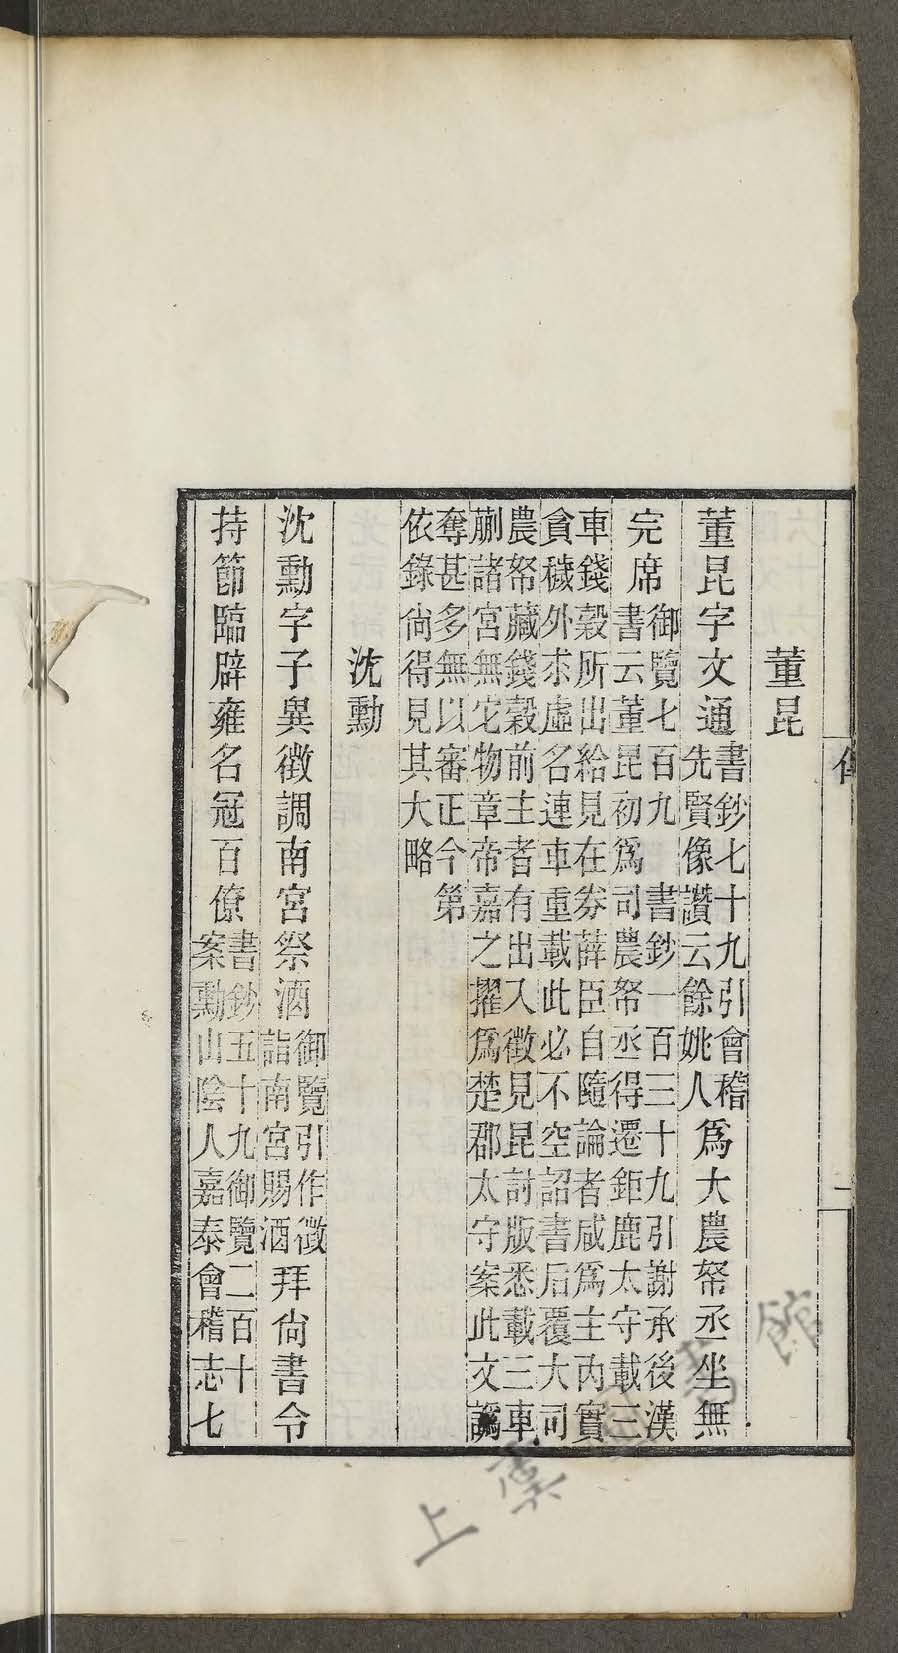 董昆
董昆字文通書鈔七十九引會稽先賢像讚云餘姚人爲大農帑丞坐無
完席御覽七百九　書鈔一百三十九引謝承後漢書云董昆初爲司農帑丞得遷鉅鹿太守載三
車錢穀所出給見在劵薛臣自隨論者咸爲主內實
貪穢外求虛名連車重載此必不空詔書后覆大司
農帑藏錢穀前主者有出入徵見昆討版悉載三車
蒯諸宮無它物章帝嘉之擢爲楚郡太守案此文譌
奪甚多無以審正今第
依錄尙得見其大略
沈勳
沈勳字子異徵調南宮祭酒御覽引作徵詣南宮賜酒拜尙書令
持節臨辟雍名冠百僚書鈔五十九御覽二百十案勳山陰人嘉泰會稽志七
上虞圖書館